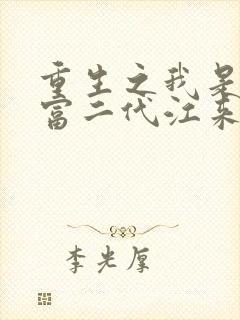 重生之我是
富二代江来
李光厚